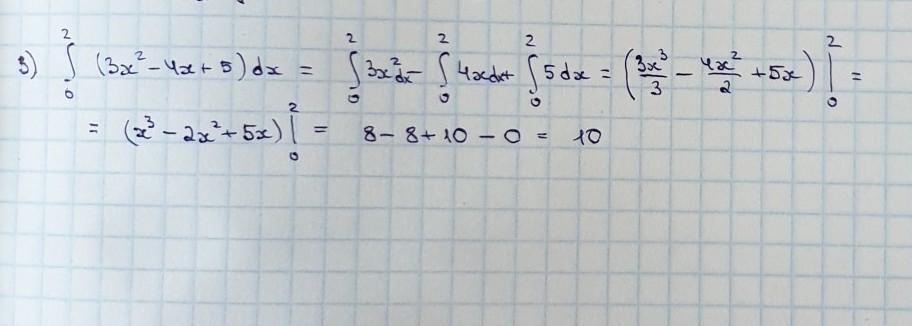 3) ∫₀² (3x² - 4x + 5) dx = ∫₀² 3x² dx - ∫₀² 4x dx + ∫₀² 5 dx = (3x³/3 - 4x²/2 + 5x) |₀² =
= (x³ - 2x² + 5x) |₀² = 8 - 8 + 10 - 0 = 10